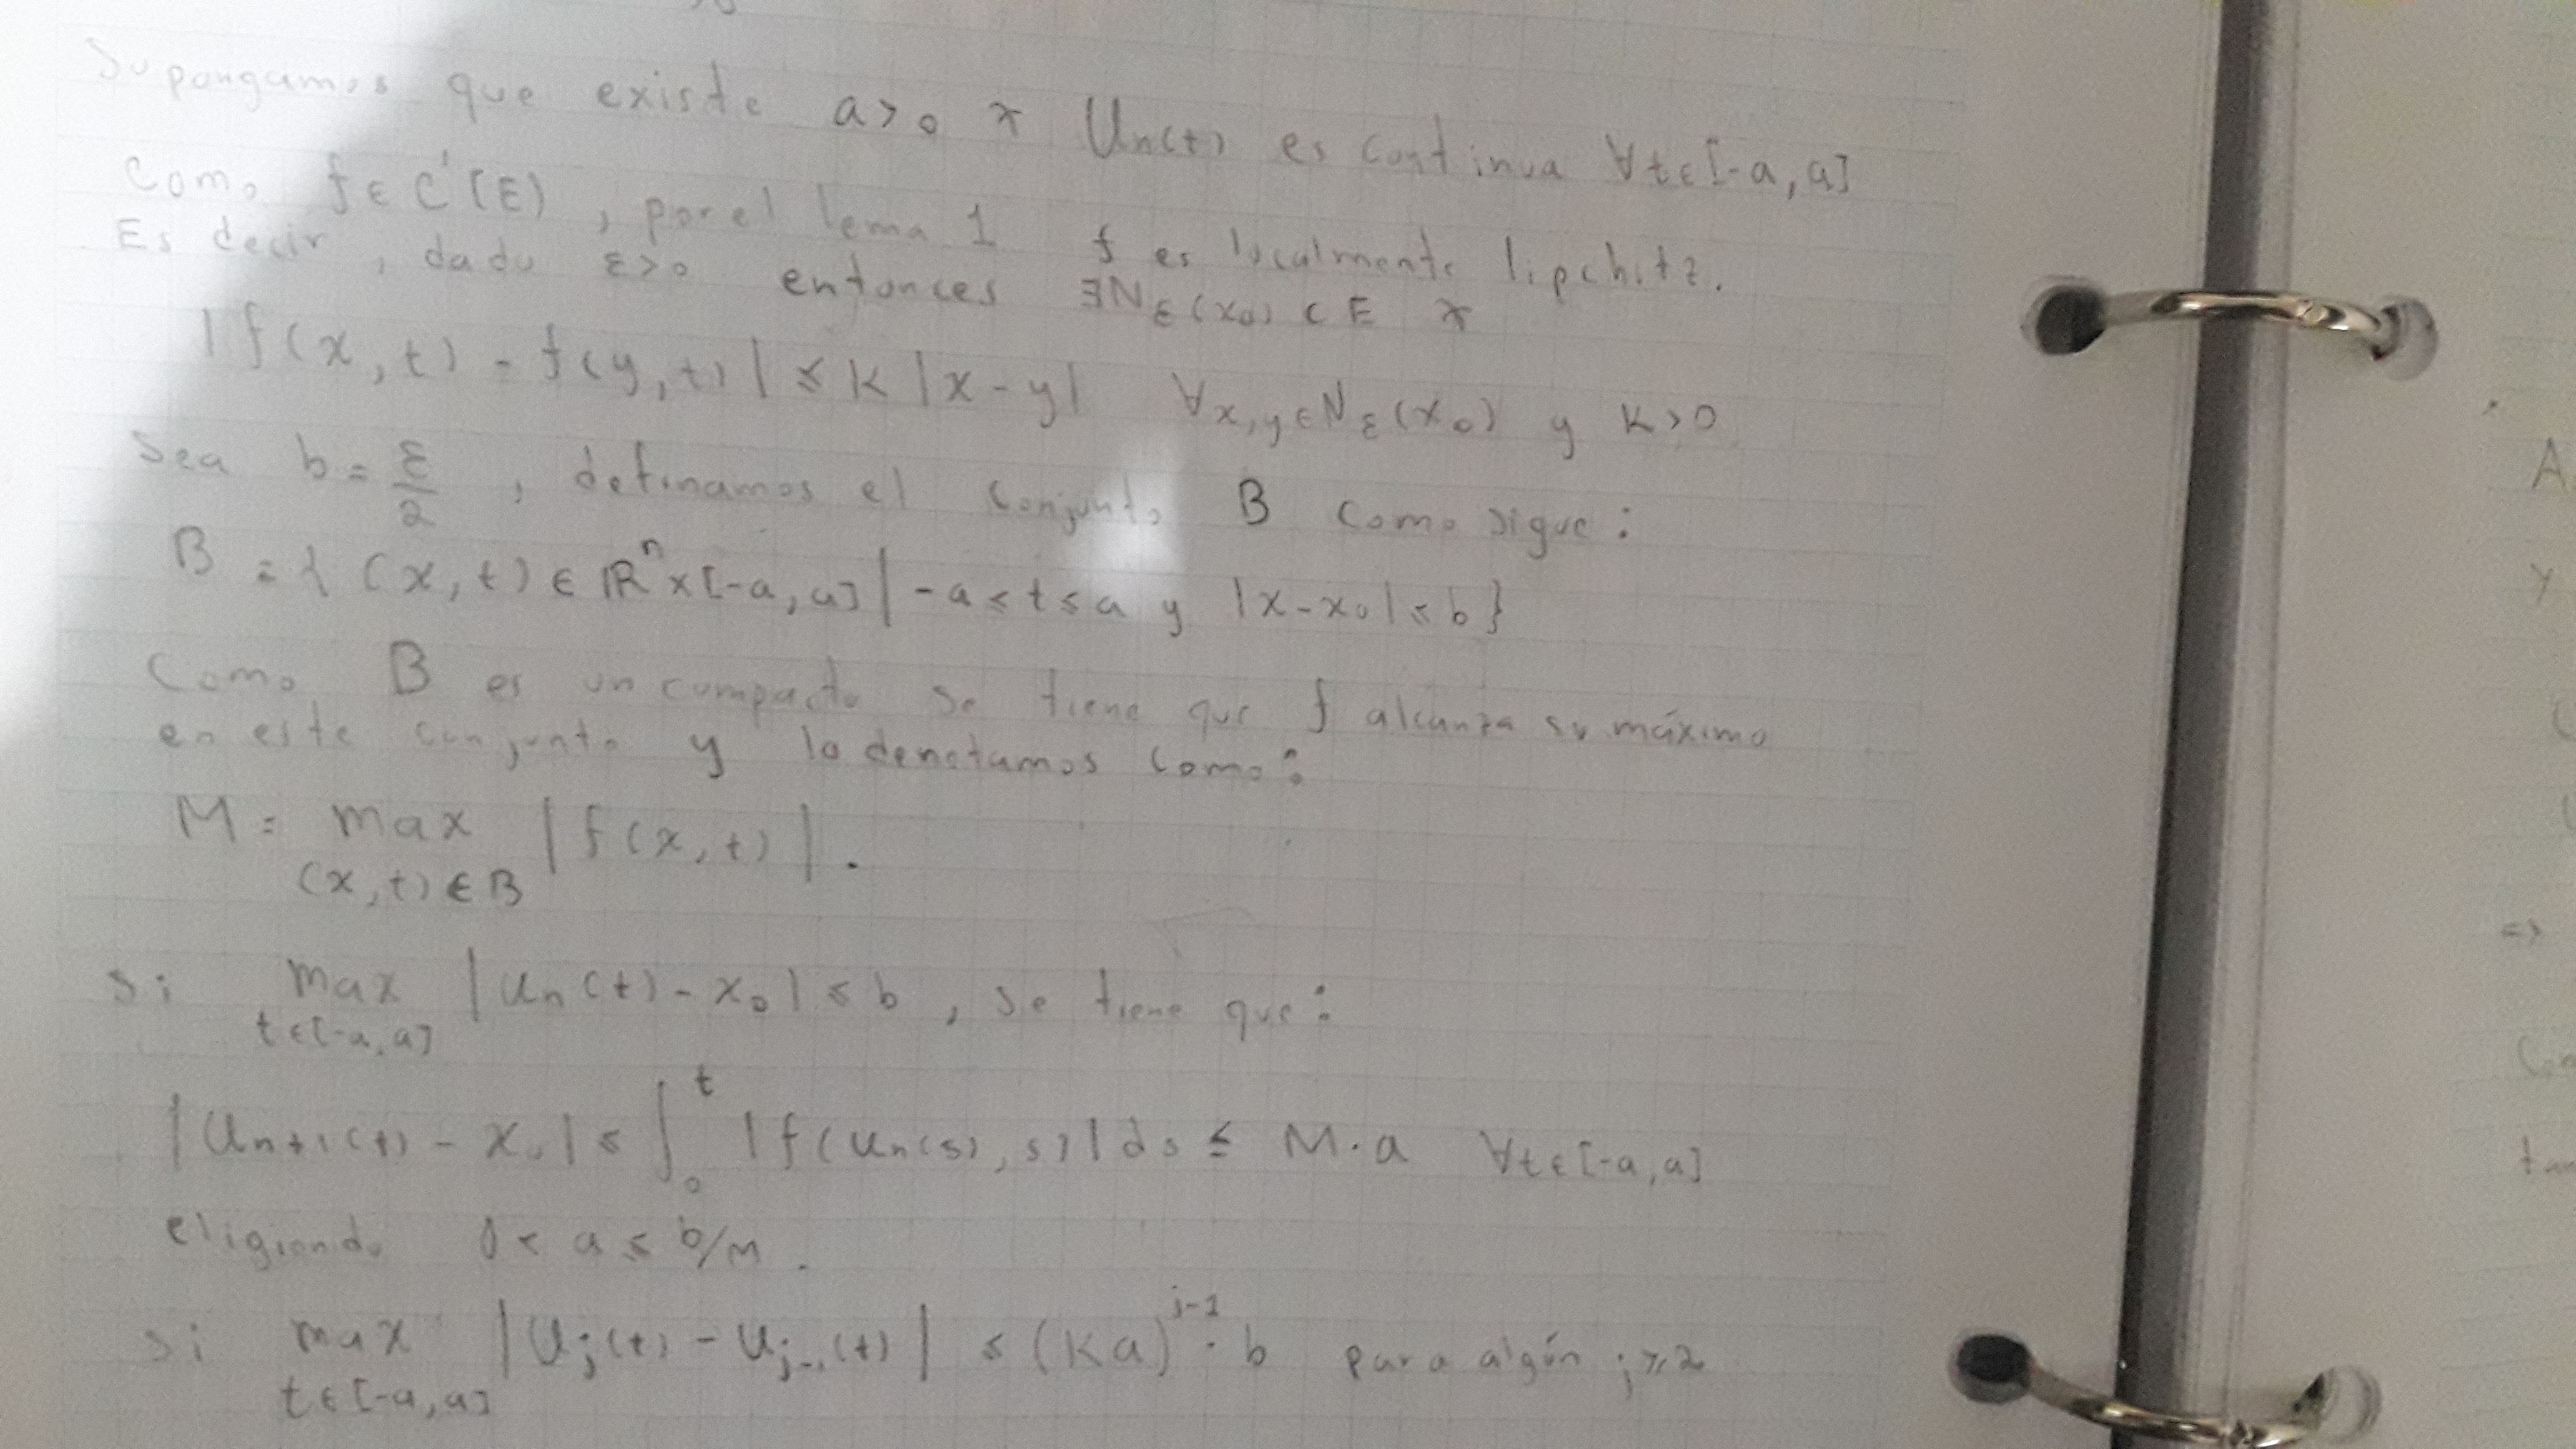 Supongamos que existe a>0 ∋ Un(t) es continua ∀t∈[-a,a]
Como f∈C¹(E), por el lema 1 f es localmente lipchitz.
Es decir, dado ε>0 entonces ∃Nε(x₀)⊂E ∋
|f(x,t)-f(y,t)| ≤ K|x-y| ∀x,y∈Nε(x₀) y K>0
Sea b=ε/2, definamos el conjunto B como sigue:
B={(x,t)∈ℝⁿx[-a,a]|-a≤t≤a y |x-x₀|≤b}
Como B es un compacto se tiene que f alcanza su máximo
en este conjunto y lo denotamos como:
M= max |f(x,t)|.
(x,t)∈B
Si max |Un(t)-x₀|≤b, se tiene que:
t∈[-a,a]
|Un+1(t)-x₀|≤∫₀ᵗ|f(Un(s),s)|ds≤ M·a ∀t∈[-a,a]
eligiendo 0<a≤b/M.
Si max |Uj(t)-Uj-1(t)| ≤(Ka)ʲ⁻¹·b para algún j≥2
t∈[-a,a]